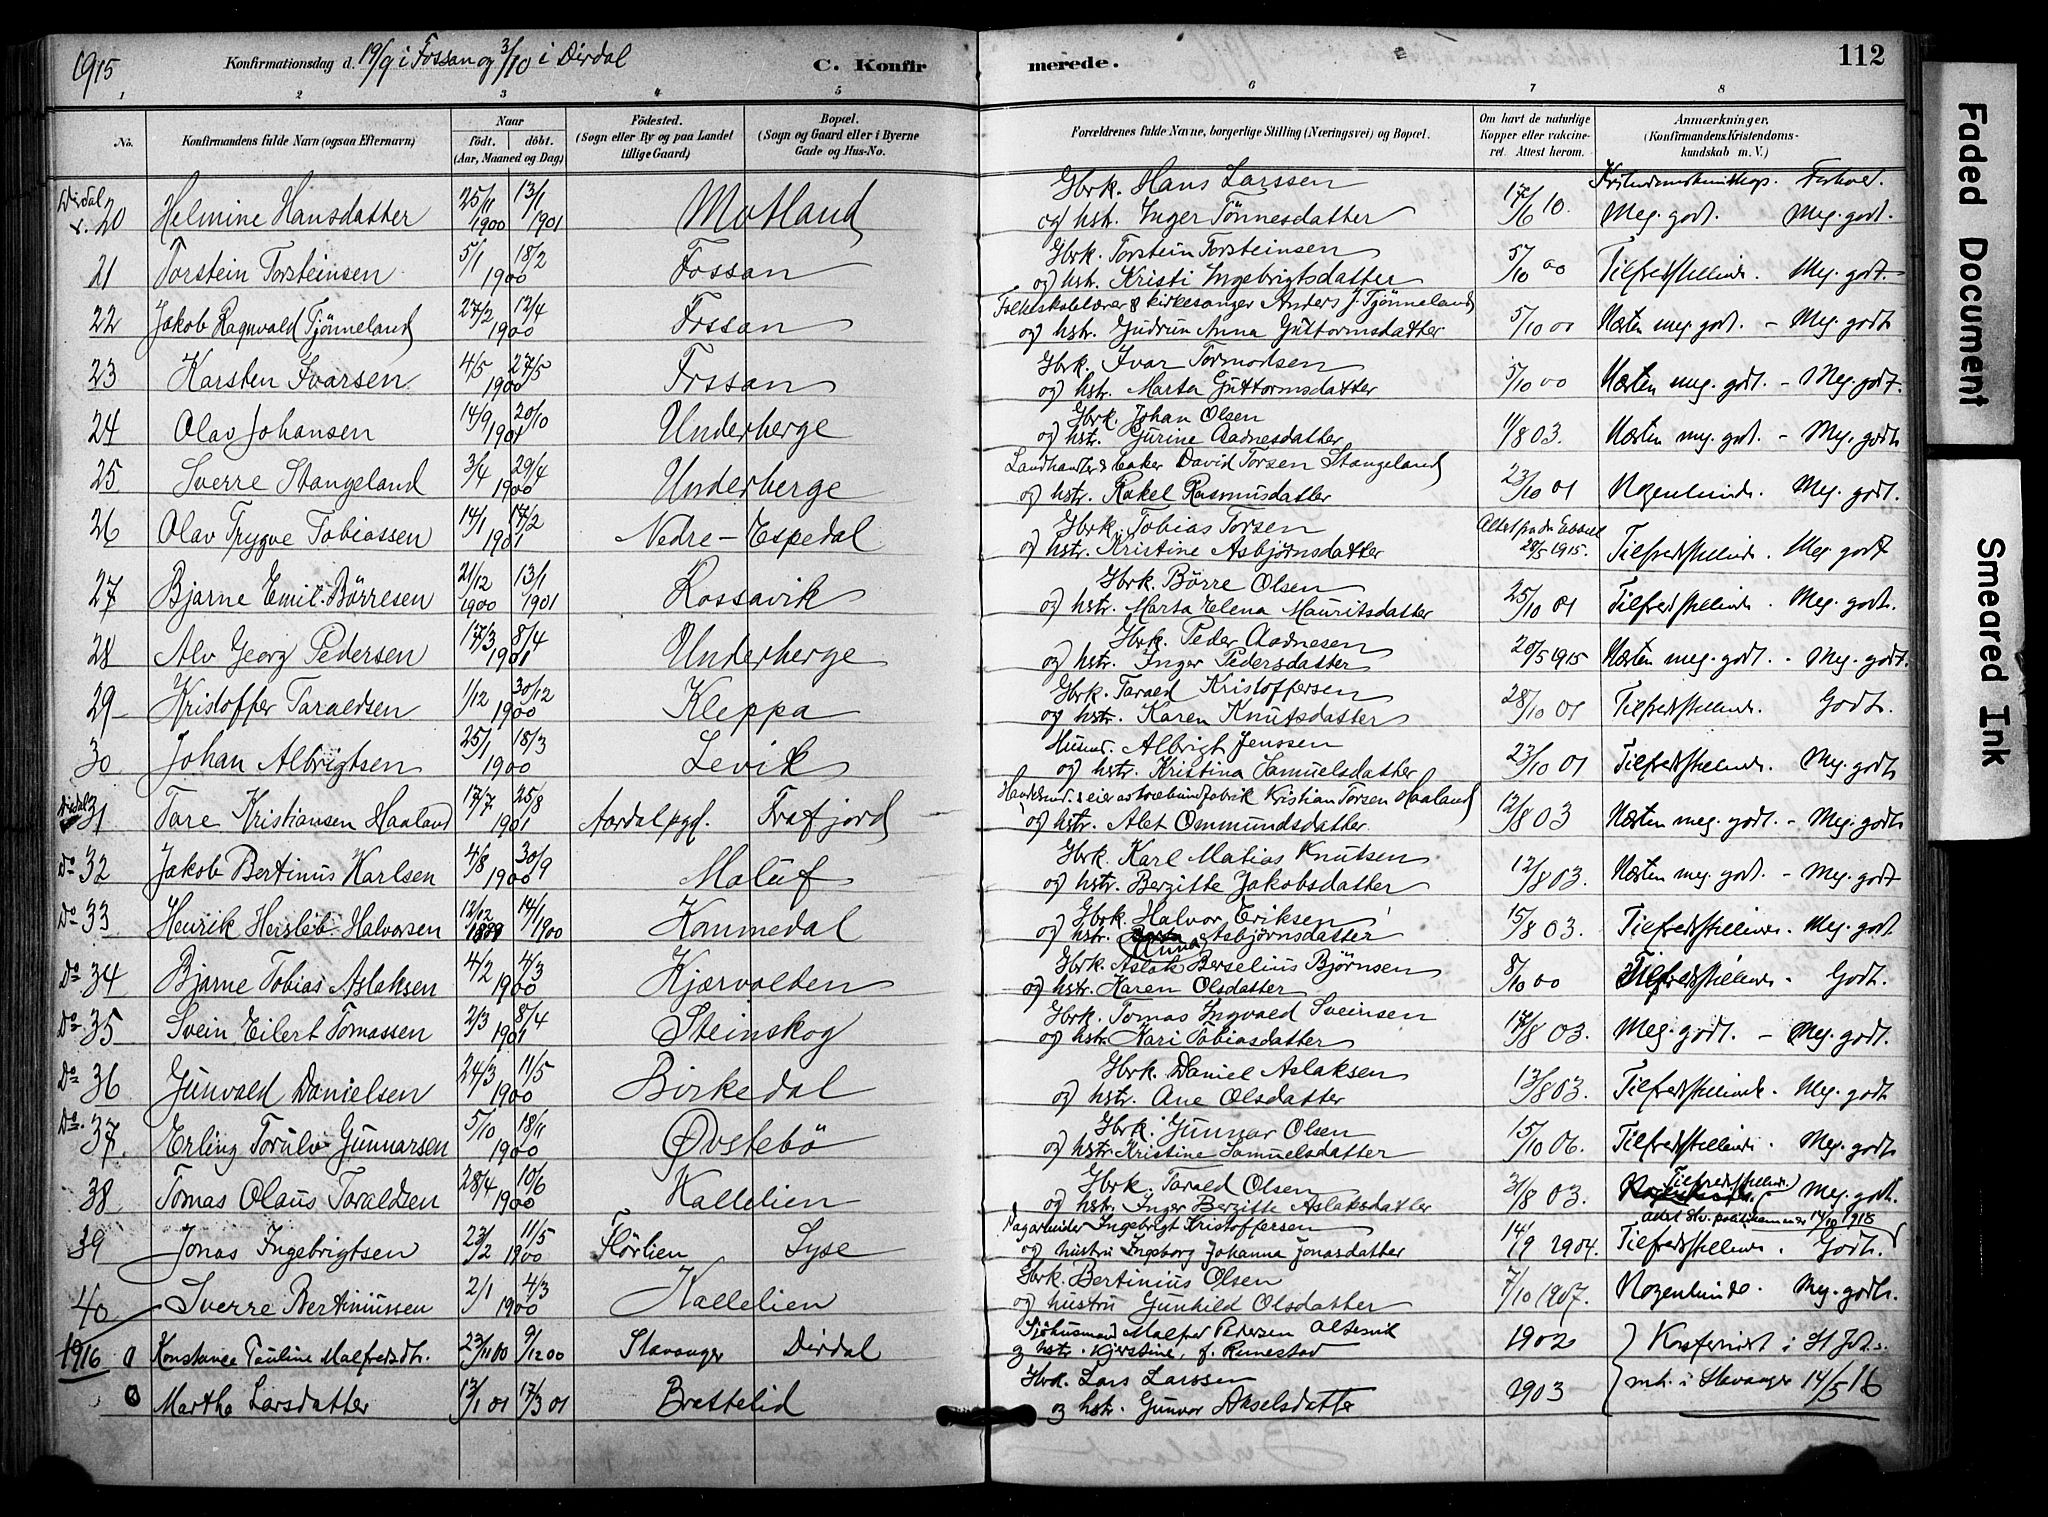 1915 Konfirmationsdag d. 19/9 i Fossan og 3/10 i Dirdal C. Konfirmerede. 112
1 2 3 4 5 6 7 8
No. Konfirmandens fulde Navn (ogsaa Efternavn) Naar født. døbt. (Aar, Maaned og Dag) Fødested. (Sogn eller By og paa Landet tillige Gaard) Bopæl. (Sogn og Gaard eller i Byerne Gade og Hus-No. Forældrenes fulde Navne, borgerlige Stilling (Næringsvei) og Bopæl. Om havt de naturlige Kopper eller vakcineret. Attest herom. Anmærkninger. (Konfirmandens Kristendomskundskab m. V.)
Gbrk. Hans Larssen Kristendomskundskap. Forhold.
Dirdal 20 Helmine Hansdatter 25/11 1900 13/1 1901 Motland og hstr. Inger Tönnesdatter 17/6 10. Meg. godt. Meg. godt.
Gbrk. Torstein Torsteinsen
21 Torstein Torsteinsen 5/1 18/2 1900 Fossan og hstr. Kristi Ingebrigtsdatter 5/10 00 Tilfredsstillende. Meg. godt.
Folkeskolelærer & kirkesanger Anders J. Tjönneland
22 Jakob Ragnvald Tjönneland 27/2 12/4 1900 Fossan og hstr. Gudrun Anna Guttormsdatter 5/10 00 Næsten meg. godt. - Meg. godt
Gbrk. Ivar Tormodsen
23 Karsten Ivarsen 4/5 27/5 1900 Fossan og hstr. Marta Guttormsdatter 5/10 00 Næsten meg. godt. - Meg. godt.
Gbrk. Johan Olsen
24 Olav Johansen 14/9 20/10 1901 Underberge og hstr. Gurine Aadnesdatter 11/8 03. Næsten meg. godt - Meg. godt
Landhandler & baker David Torsen Stangeland
25 Sverre Stangeland 3/4 29/4 1900 Underberge og hstr. Rakel Rasmusdatter 23/10 01 Nogenlunde. Meg. godt.
Gbrk. Tobias Torsen
26 Olav Trygve Tobiassen 14/1 17/2 1901 Nedre-Espedal og hstr. Kristine Asbjørnsdatter 29/5 1915. Tilfredsstillende. Meg. godt
Gbrk. Børre Olsen
27 Bjarne Emil Børresen 21/12 1900 13/1 1901 Rossavik og hstr. Marta Elena Mauritsdatter 25/10 01 Tilfredsstillende. Meg. godt.
Gbrk. Peder Aadnesen
28 Alv Georg Pedersen 17/3 8/4 1901 Underberge og hstr. Inger Pedersdatter 20/5 1915 Næsten meg. godt. - Meg. godt.
Gbrk. Tarald Kristoffersen
29 Kristoffer Taraldsen 1/12 30/12 1900 Kleppa og hstr. Karen Knutsdatter 28/10 01 Tilfredsstillende. Godt.
Husmd. Albrigt Jenssen
30 Johan Albrigtsen 25/1 18/3 1900 Levik og hstr. Kristina Samuelsdatter 23/10 01 Tilfredsstillende. Meg. godt
Kristian Torsen Haaland
Dirdal 31 Tore Kristiansen Haaland 17/7 25/8 1901 Aardal pgd. Frafjord og hstr. Alet Ommundsdatter 12/8 03 Næsten meg. godt. - Meg. godt
Gbrk. Karl Matias Knutsen
Do 32 Jakob Bertinus Karlsen 4/8 30/9 1900 Maluf og hstr. Bergitte Jakobsdatter 12/8 03. Næsten meg. godt. - Meg. godt
Gbrk. Halvor Eriksen
Do 33 Henrik Hersleb Halvorsen 12/12 1899 14/1 1900 Kommedal og hstr. Anna Asbjørnsdatter 15/8 03. Tilfredsstillende. Meg. godt
Gbrk. Aslak Berselius Bjørnsen
Do 34 Bjarne Tobias Aslaksen 4/2 4/3 1900 Kjærvolden og hstr. Karen Olsdatter 8/10 00 Tilfredsstillende. Godt.
Gbrk. Tomas Ingvald Sveinsen
Do 35 Svein Eilert Tomassen 2/3 8/4 1901 Steinskog og hstr. Kari Tobiasdatter 17/8 03. Meg. godt. - Meg. godt.
Gbrk. Daniel Aslaksen
Do 36 Gunvald Danielsen 24/3 11/5 1900 Birkedal og hstr. Ane Olsdatter 13/8 03. Tilfredsstillende. Meg. godt
Gbrk. Gunnar Olsen
Do 37 Erling Torulv Gunnarsen 5/10 18/11 1900 Øvstebö og hstr. Kristine Samuelsdatter 15/10 06. Tilfredsstillende. Meg. godt
Gbrk. Tarald Olsen
38 Tomas Olaus Taraldsen 28/4 10/6 1900 Kallelien og hstr. Inger Bergitte Aslaksdatter 31/8 03. Tilfredsstillende Meg. godt.
Dagarbeider Ingebrigt Kristoffersen 14/10 1918
39 Jonas Ingebrigtsen 23/2 11/5 1900 Flörlien Lyse og hustru Ingeborg Johanna Jonasdatter 14/9 1904. Tilfredsstillende. Godt.
Gbrk. Bertinius Olsen
40 Sverre Bertiniussen 2/1 4/3 1900 Kallelien og hustru Gunhild Olsdatter 7/10 1907. Nogenlunde. Meg. godt.
Malfred Pedersen
1916 0 Konstance Pauline Malfredsdtr. 23/11 00 9/12 00 Stavanger Dirdal og hstr. Kjerstine, f. Runestad 1902 Konfirmert i St. Joh.
Gbrk. Lars Larssen
0 Martha Larsdatter 13/1 01 17/3 01 Brattelid og hstr. Gunvor Akselsdatter 1903 mh. i Stavanger 14/5 16
Faded Document
Smeared Ink